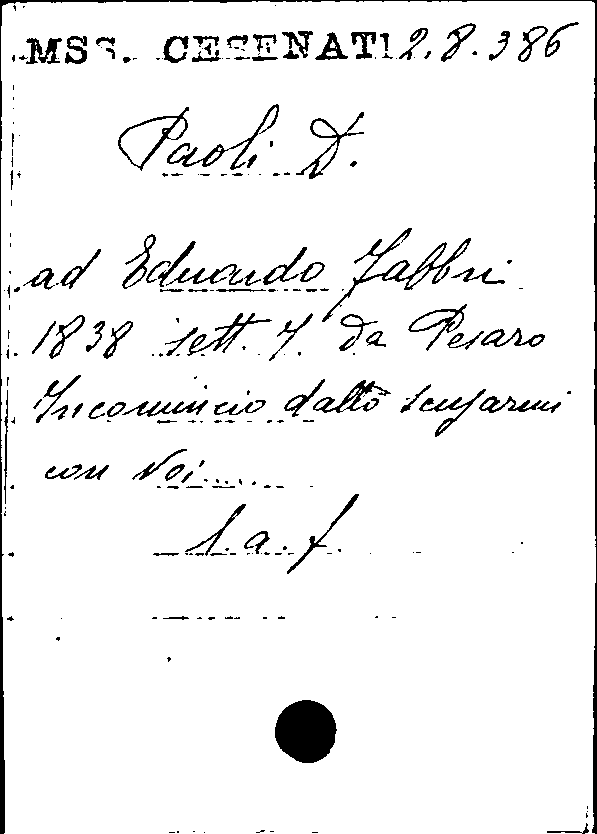 MSS. CESENATI 2.8.386
Paoli D.
ad Eduardo Fabbri
1838 sett. 7. da Pesaro
Incomincio dallo scusarmi
con Voi......
l. a. f.